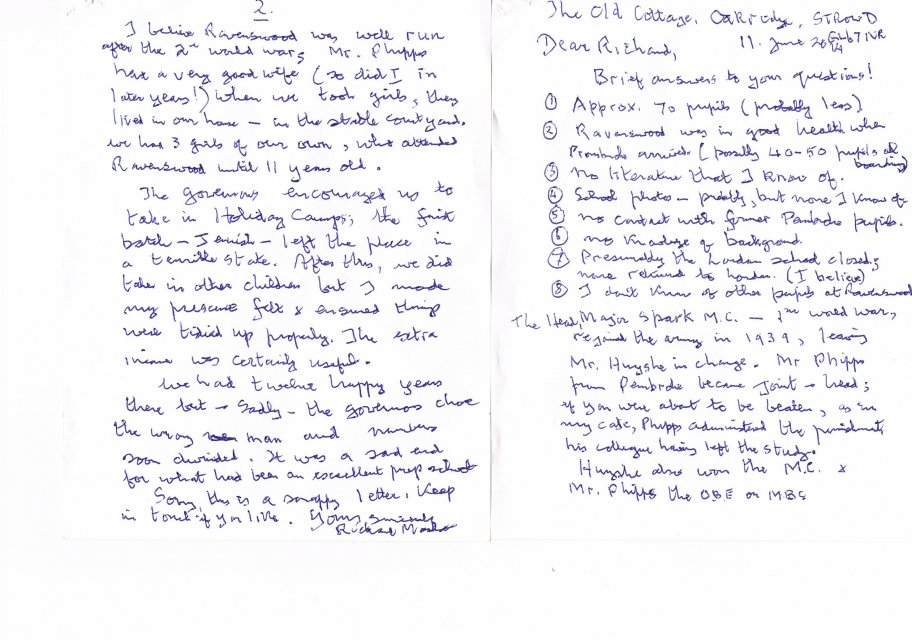 The Old Cottage, Oakridge, STROUD
GL6 7NR
11. June 2014
Dear Richard,
Brief answers to your questions!
① Approx. 70 pupils (probably less)
② Ravenswood was in good health when
Pembroke arrived (possibly 40-50 pupils all
boarding)
③ No literature that I know of.
④ School photo - probably, but none I know of
⑤ No contact with former Pembroke pupils.
⑥ No knowledge of background.
⑦ Presumably the London school closed;
none returned to London. (I believe)
⑧ I don't know of other pupils at Ravenswood
The Head, Major Spark M.C. - 1st world war,
rejoined the army in 1939, leaving
Mr. Huyshe in charge. Mr Phipps
from Pembroke became joint-head;
if you were about to be beaten, as in
my case, Phipps administered the punishment,
his colleague having left the study.
Huyshe also won the M.C. &
Mr. Phipps the OBE or MBE
2.
I believe Ravenswood was well run
after the 2nd world war; Mr. Phipps
had a very good wife (so did I in
later years!) When we took girls, they
lived in our house - in the stable courtyard.
We had 3 girls of our own, who attended
Ravenswood until 11 years old.
The governors encouraged us to
take in Holiday Camps; the first
batch - Jewish - left the place in
a terrible state. After this, we did
take in other children but I made
my presence felt & ensured things
were tidied up properly. The extra
income was certainly useful.
We had twelve happy years
there but - sadly - the governors chose
the wrong man and numbers
soon dwindled. It was a sad end
for what had been an excellent prep school
Sorry this is a scrappy letter. Keep
in touch if you like. Yours sincerely
Richard